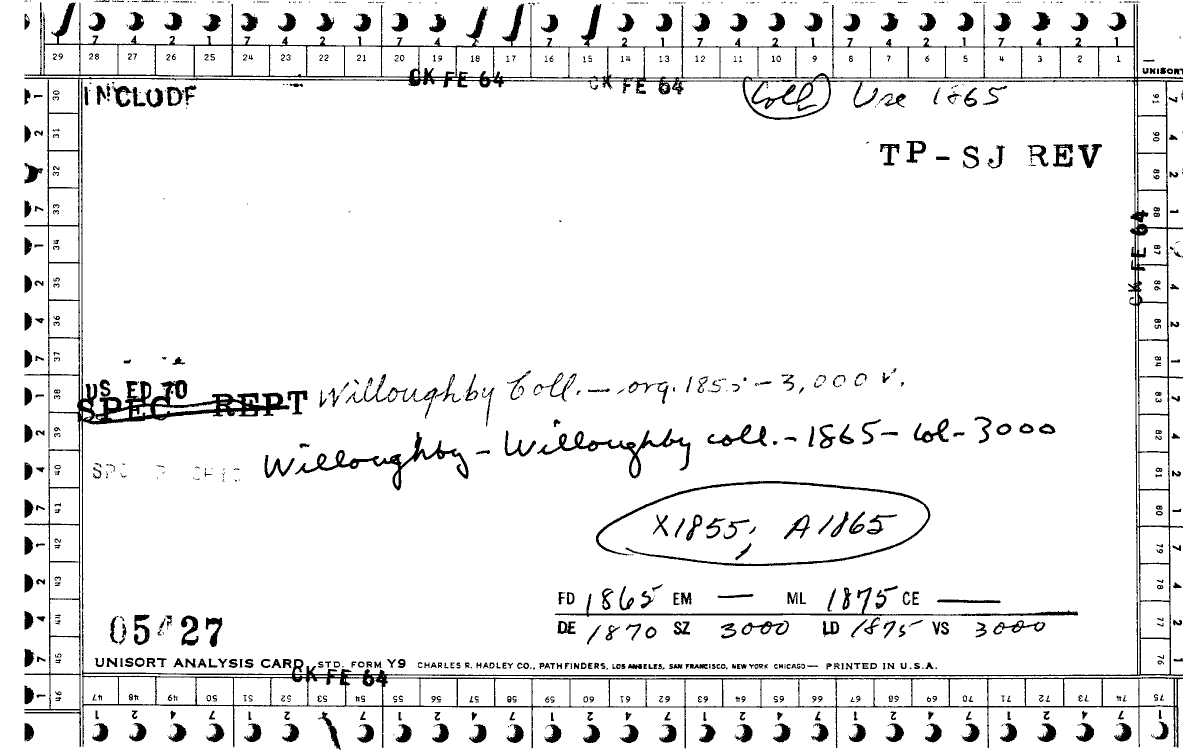 7 4 2 1 7 4 2 1 7 4 2 1 7 4 2 1 7 4 2 1 7 4 2 1 7 4 2 1
29 28 27 26 25 24 23 22 21 20 19 18 17 16 15 14 13 12 11 10 9 8 7 6 5 4 3 2 1
CK FE 64 CK FE 64 UNISORT
INCLUDE Coll Use 1865
TP-SJ REV
CK FE 64
US ED 70
SPEC REPT Willoughby Coll. — org. 1855 - 3,000 v.
Willoughby - Willoughby coll. - 1865 - col - 3000
X1855, A1865
FD 1865 EM — ML 1875 CE —
DE 1870 SZ 3000 LD 1875 VS 3000
UNISORT ANALYSIS CARD STD. FORM Y9 CHARLES R. HADLEY CO., PATHFINDERS, LOS ANGELES, SAN FRANCISCO, NEW YORK CHICAGO — PRINTED IN U.S.A.
CK FE 64
30 31 32 33 34 35 36 37 38 39 40 41 42 43 44 45 46
91 90 89 88 87 86 85 84 83 82 81 80 79 78 77 76
47 48 49 50 51 52 53 54 55 56 57 58 59 60 61 62 63 64 65 66 67 68 69 70 71 72 73 74 75